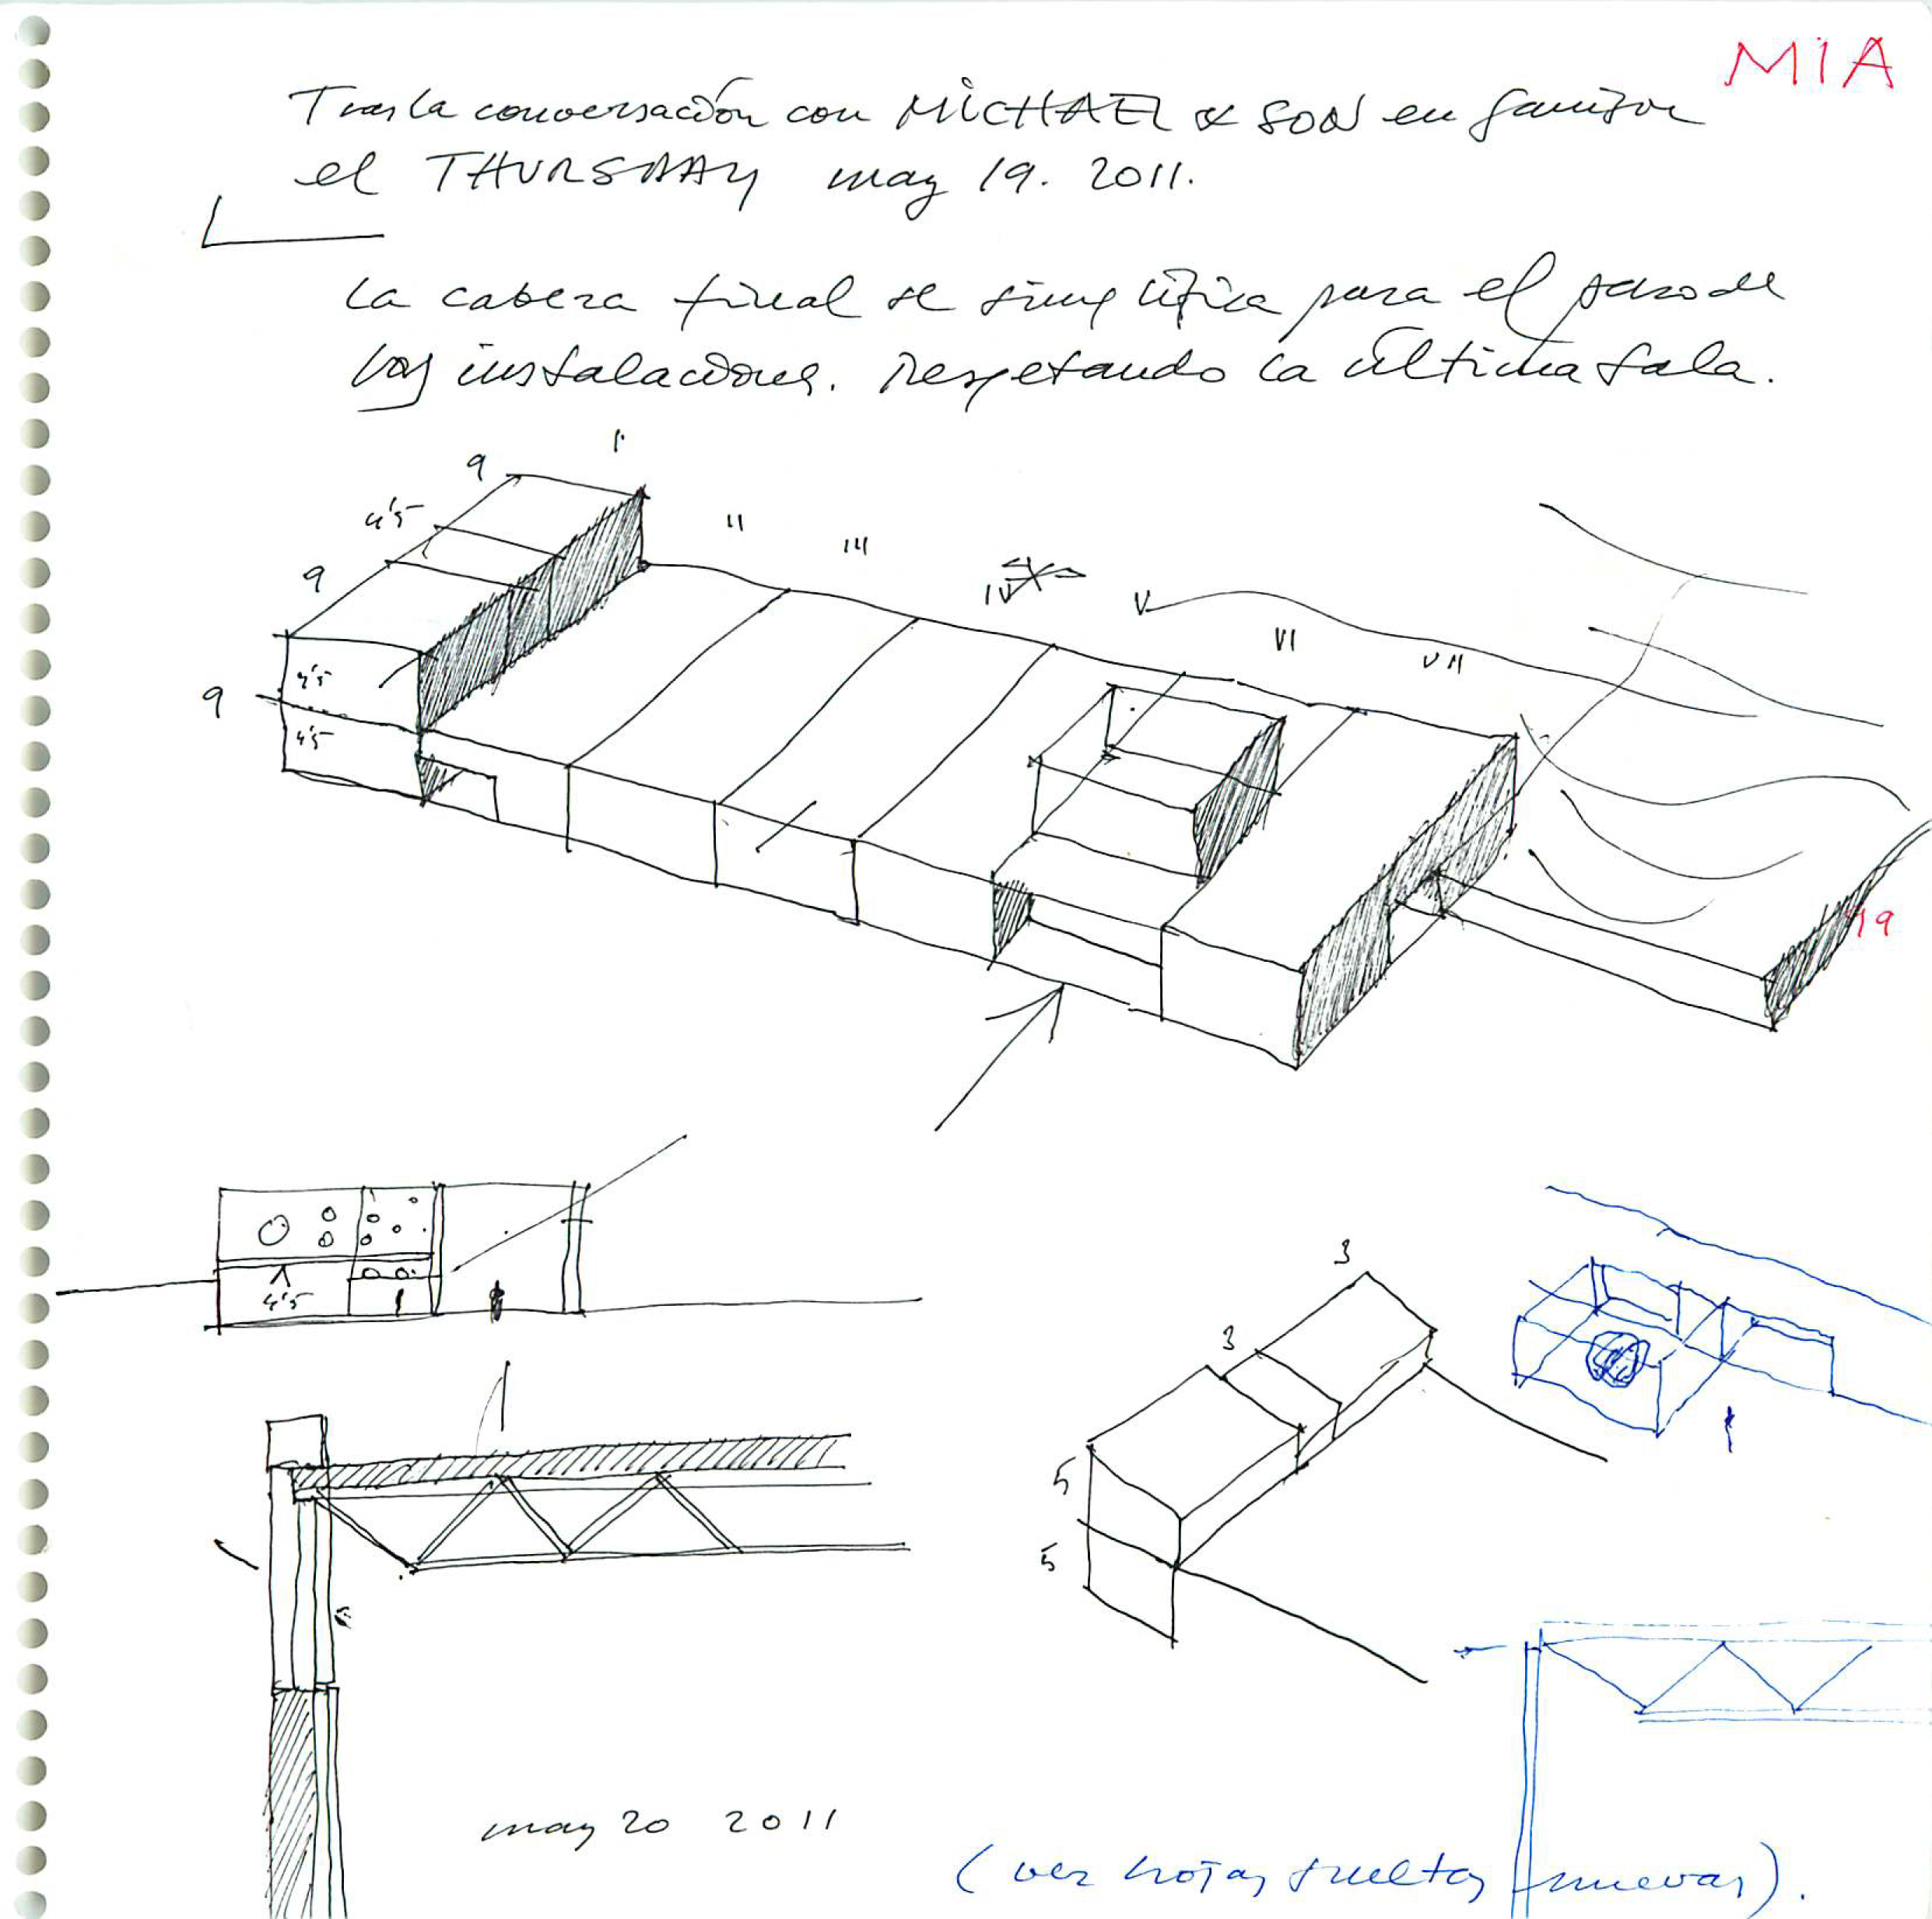 MIA
Tras la conversación con MICHAEL & SON en Garrison
el THURSDAY may 19. 2011.
la cabeza final se simplifica para el paso de
las instalaciones. Respetando la última sala.
I
9
4'5
II
III
9
IV
V
VI
VII
4'5
9
4'5
19
4'5
3
3
5
5
may 20 2011
(ver hojas sueltas nuevas).